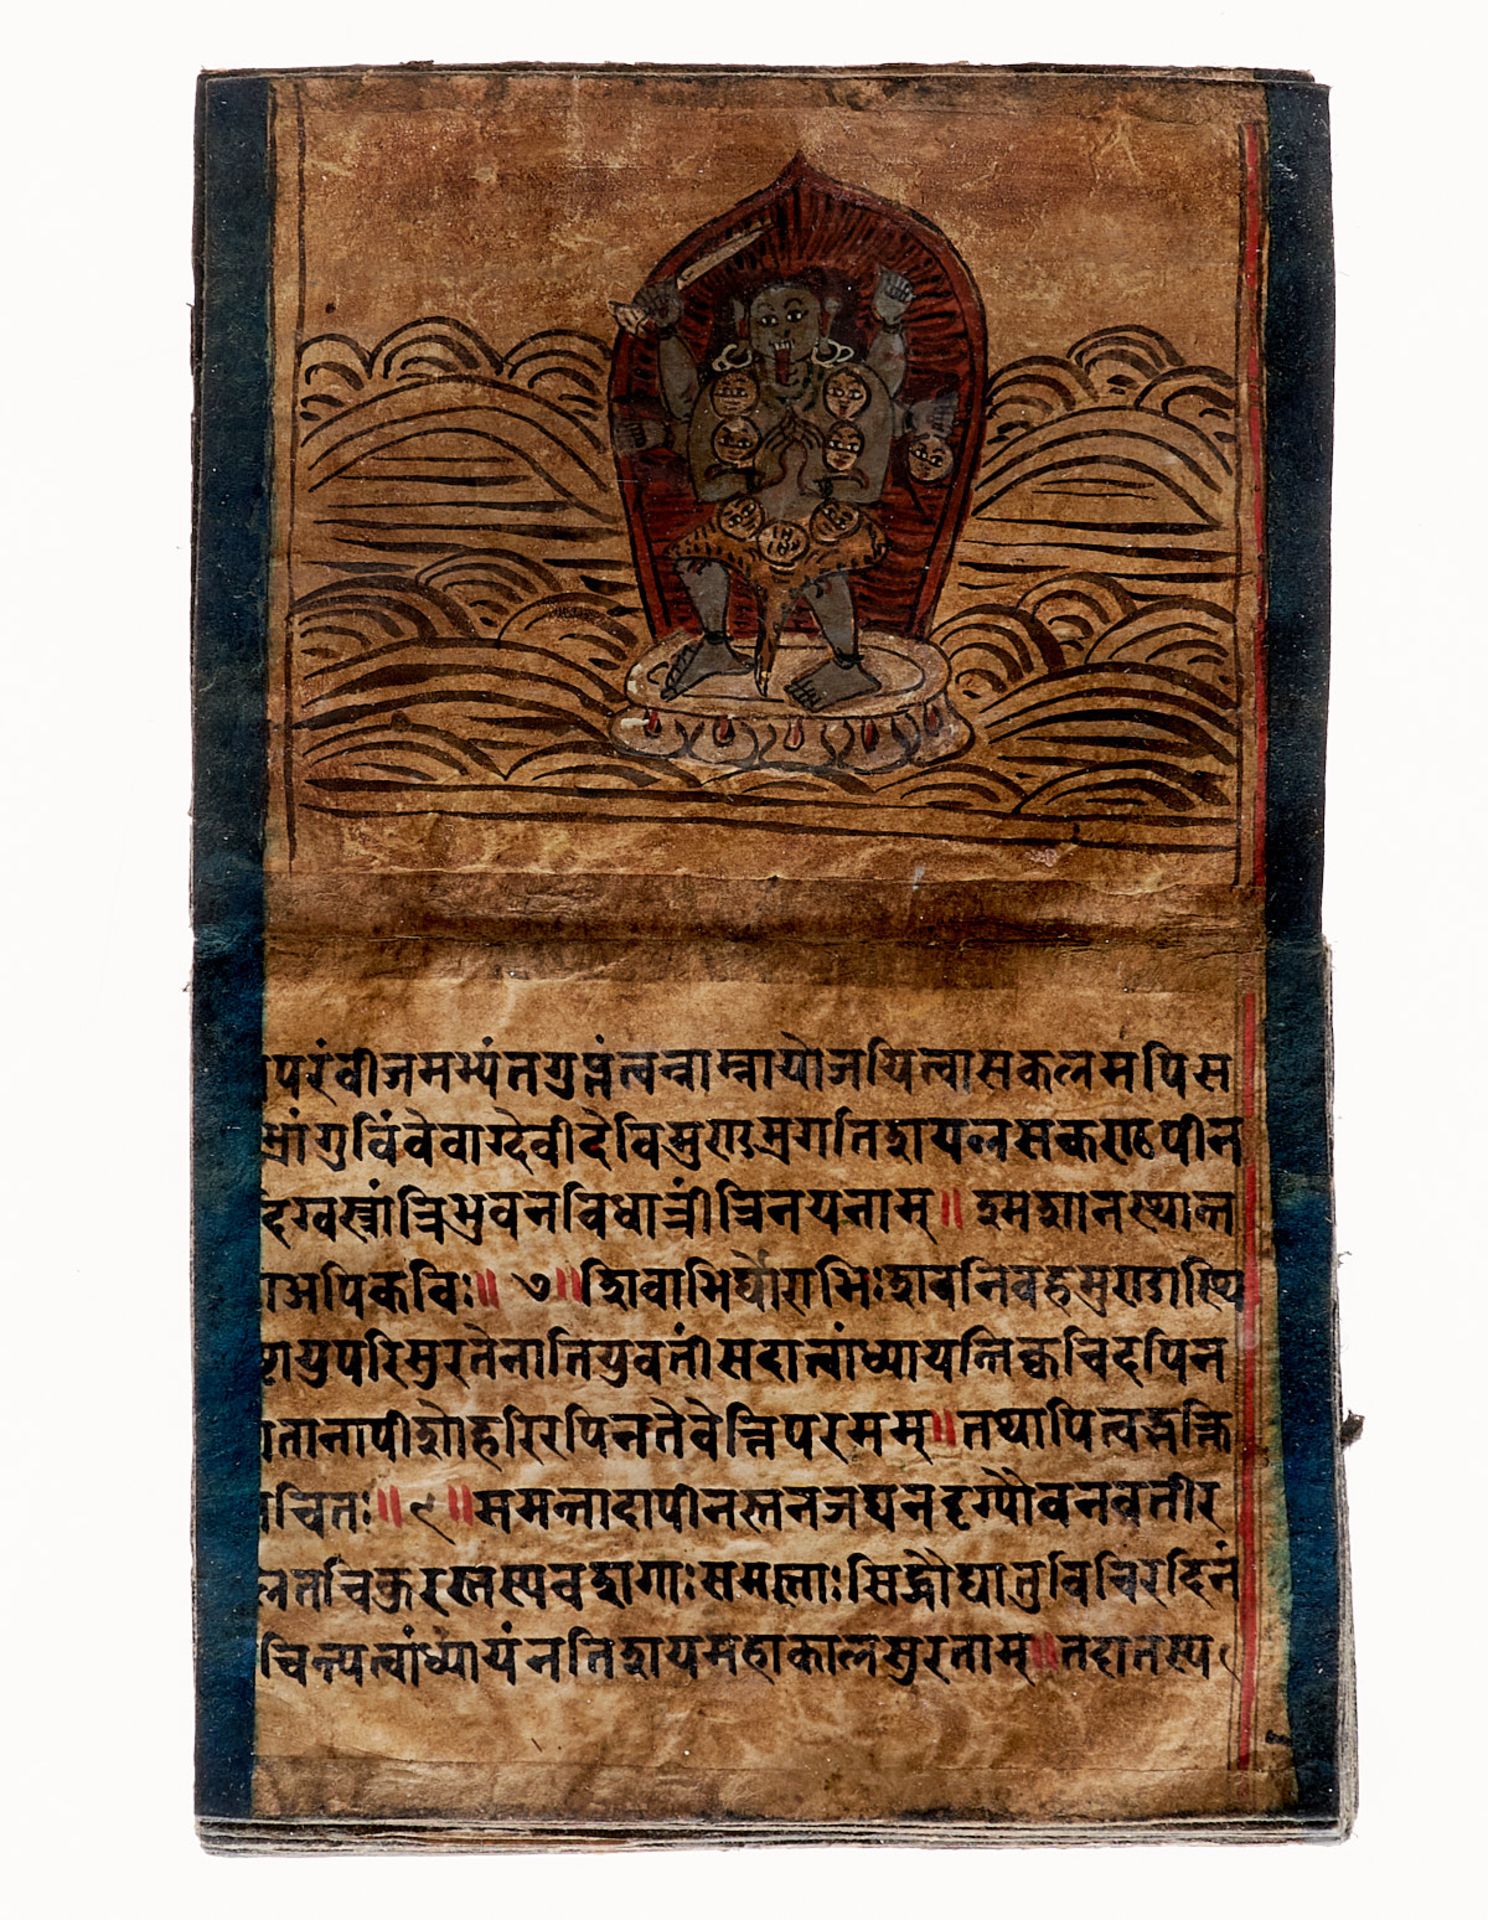 परंवीजमभ्यंतगुप्तंत्वन्नाम्नायोजयित्वासकलमपिस
भ्रांगुविंवैवाग्देवीदेविमुराड्म्रगतिशयन्नसकराठपीन
दिग्वस्त्रांत्रिभुवनविधात्रींत्रिनयनाम्॥ श्मशानस्थान्त
अपिकविः॥७॥शिवाभिर्घोराभिःशवनिवहमुराडास्थि
युपरिसुरतेनातियुवतींसदात्वांध्यायन्तिक्वचिदपिन
तानापीशोहरिरपिनतेवेत्तिपरमम्॥तथापित्वद्भक्ति
चितः॥९॥समन्तादापीनस्तनजघनदृग्यौवनवतीर
लतचिकुरस्तस्यवशगाः समस्ताः सिद्धौद्याभुविचिरदिनं
चिन्त्यत्वांध्यायंनतिशयमहाकालसुरताम्॥तदातस्य